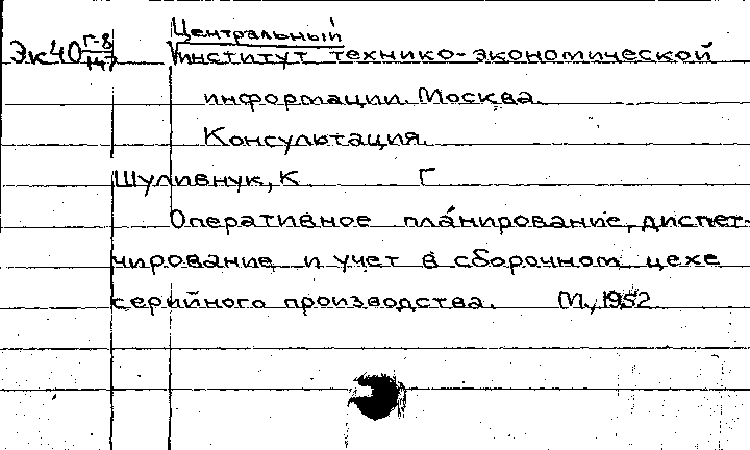 Центральный
Эк40 Г-8/147 институт технико-экономической
информации. Москва.
Консультация.
Шуливнук, К. Г
Оперативное планирование, диспет-
чирование и учет в сборочном цехе
серийного производства. М., 1952.